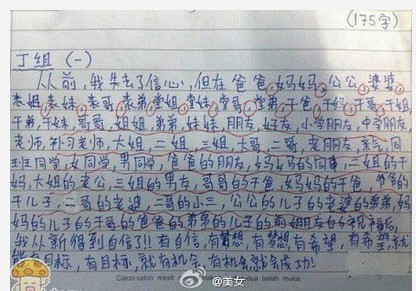 (175字)
丁组 (一)
从前，我失去了信心，但在爸爸，妈妈，公公，婆婆，
表姐，表妹，表哥，表弟，堂姐，堂妹，堂哥，堂弟，干爸，干妈，干哥，干姐，
干弟，干妹，哥哥，姐姐，弟弟，妹妹，朋友，好友，小学朋友，中学朋友，
老师，补习老师，大姐，二姐，三姐，大哥，二哥，老朋友，
班同学，女同学，男同学，爸爸的朋友，妈妈的同事，二姐的干
妈，大姐的老公，三姐的男友，哥哥的干爸，妈妈的干爸，爷爷的
干儿子，二哥的老婆，二哥的小三，公公的儿子的老婆的弟弟，妈
妈的儿子的干哥的爸爸的弟弟的儿子的前女朋友的祝福后，
我从新得到自信了!! 有自信，有梦想，有梦想，有希望，有希望，就
目标，有目标，就有机会，有机会就会成功!
Calon-calon mesti
belah muka
@美女